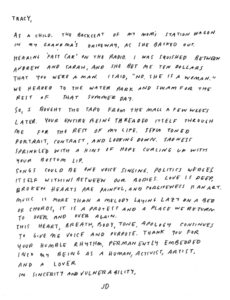 TRACY,
AS A CHILD, THE BACKSEAT OF MY MOM'S STATION WAGON
IN MY GRANDMA'S DRIVEWAY, AS SHE BACKED OUT
HEARING 'FAST CAR' ON THE RADIO I WAS SQUISHED BETWEEN
ANDREW AND SARAH, AND SHE BET ME TEN DOLLARS
THAT YOU WERE A MAN. I SAID, "NO, SHE IS A WOMAN."
WE HEADED TO THE WATER PARK AND SWAM FOR THE
REST OF THAT SUMMER DAY.
SO, I BOUGHT THE TAPE FROM THE MALL A FEW WEEKS
LATER. YOUR ENTIRE BEING THREADED ITSELF THROUGH
ME FOR THE REST OF MY LIFE. SEPIA TONED
PORTRAIT, CONTRAST, AND LOOKING DOWN. SADNESS
SPRINKLED WITH A HINT OF HOPE CURLING UP WITH
YOUR BOTTOM LIP.
SONGS COULD BE ONE VOICE SINGING, POLITICS WEDGES
ITSELF WITHIN BETWEEN OUR BODIES. LOVE IS DEEP,
BROKEN HEARTS ARE PAINFUL, AND FORGIVENESS IS AN ART.
MUSIC IS MORE THAN A MELODY LAYING LAZY ON A BED
OF CHORDS, IT IS A PROTEST AND A PLACE WE RETURN
TO OVER AND OVER AGAIN.
THIS HEART, BREATH, BODY, TONE, APOLOGY CONTINUES
TO GIVE ME VOICE AND PURPOSE. THANK YOU FOR
YOUR HUMBLE RHYTHM, PERMANENTLY EMBEDDED
INTO MY BEING AS A HUMAN, ACTIVIST, ARTIST,
AND A LOVER.
IN SINCERITY AND VULNERABILITY,
JD